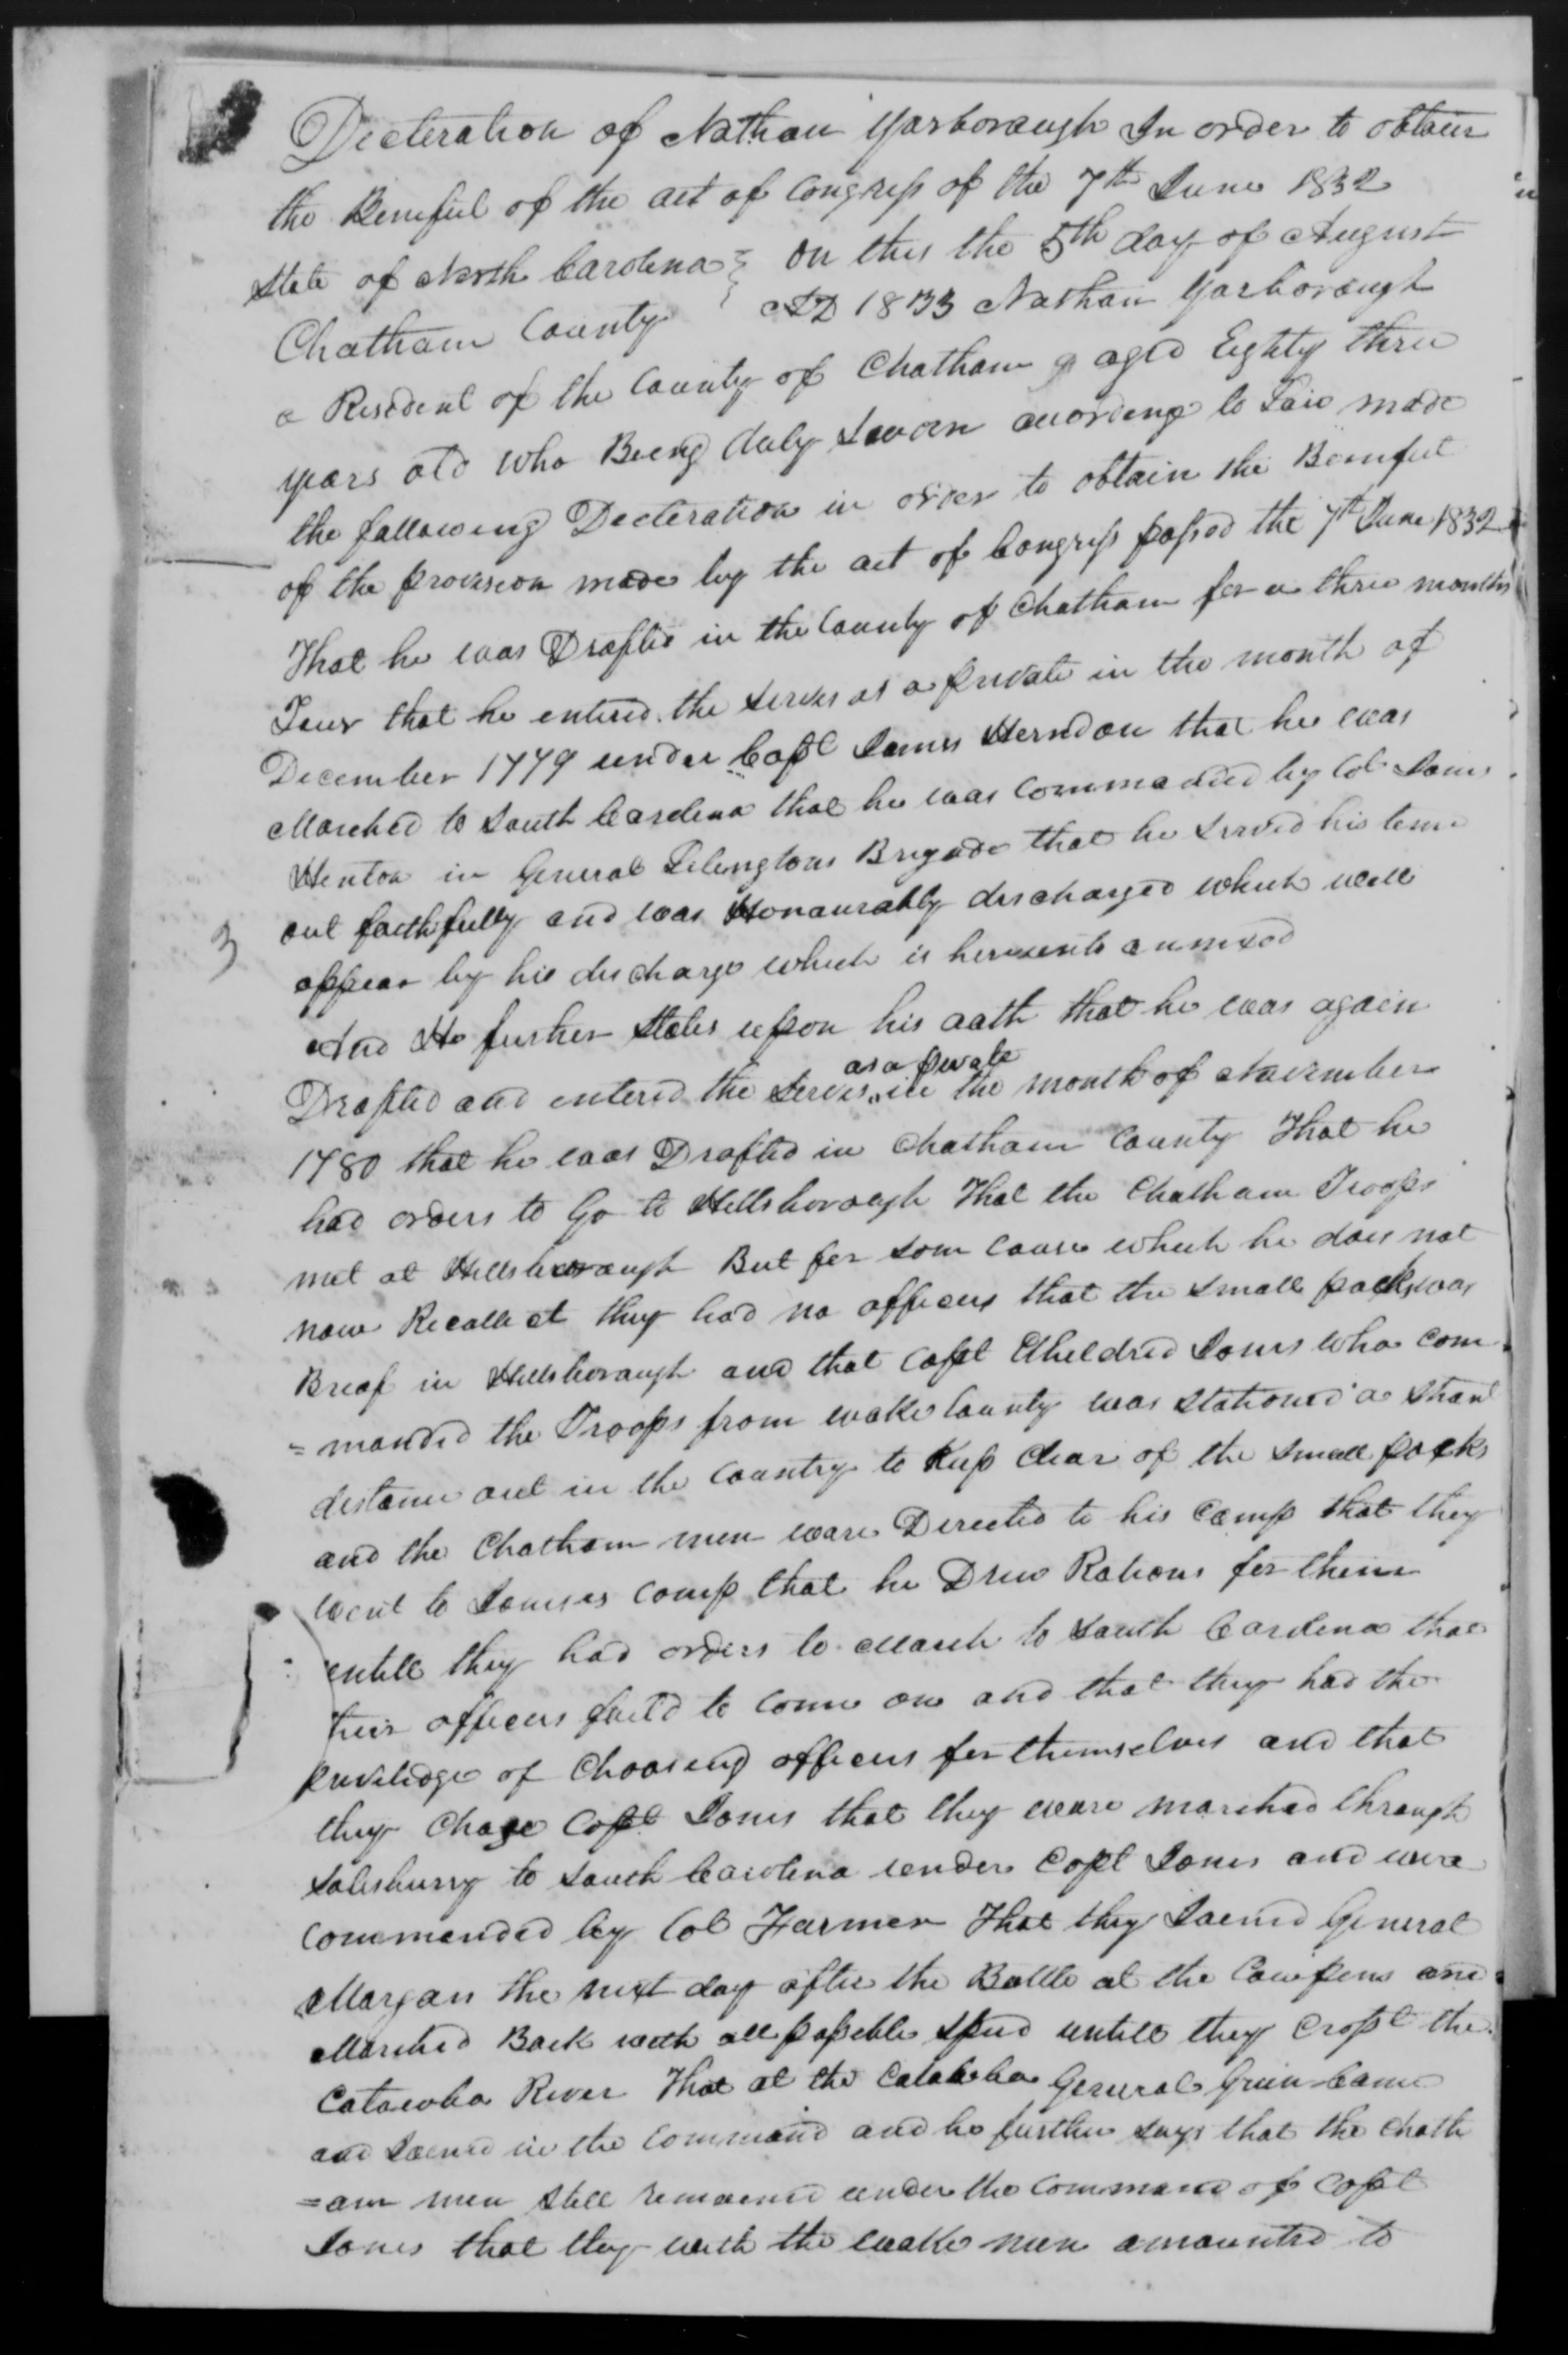 Decleration of Nathan Yarborough In order to obtain
the Benefiet of the act of Congress of the 7th June 1832
State of North Carolina } On this the 5th day of August
Chatham County } AD 1833 Nathan Yarborough
a Resedent of the County of Chatham aged Eighty three
years old who Being duly Sworn acording to Law made
the following Decleration in order to obtain the Benifeet
of the provision made by the act of Congress passed the 7th June 1832
That he was Drafted in the County of Chatham for a three months
Tour that he entered the serves as a private in the month of
December 1779 under Capt James Herndon that he was
Marched to South Carolina that he was Commanded by Col James
Henton in General Lilingtons Brigade that he served his time
out faithfully and was Honourably discharged which will
appear by his discharge which is hereunto annexed
3
And He further States upon his oath that he was again
Drafted and entered the serves as a private in the month of November
1780 that he was Drafted in Chatham County That he
had orders to Go to Hillsborough That the Chatham Troops
met at Hillsborough But for some cause which he does not
now Recollect they had no officers that the small pocks was
Breaf in Hillsborough and that Capt Etheldred Jones who com
=manded the Troops from wake County was stationed a short
distance out in the Country to Keep Clear of the small pocks
and the Chatham men ware Directed to his Camp that they
went to Joneses Camp that he Drew Rations for them
untill they had orders to March to South Carolina that
their officers faild to Come on and that they had the
priviledge of Choosing officers for themselves and that
they Chose Capt Jones that they ware marched through
Salisburry to South Carolina under Capt Jones and ware
Commended by Col Farmer That they Joened General
Morgan the next day after the Battle at the Cowpens and
Marched Back with all posseble speed untill they Crost the
Catawba River That at the Catawba General Green Came
and Joened in the Command and he further says that the Chath
=am men still remained under the Command of Capt
Jones that they with the wake men amounted to